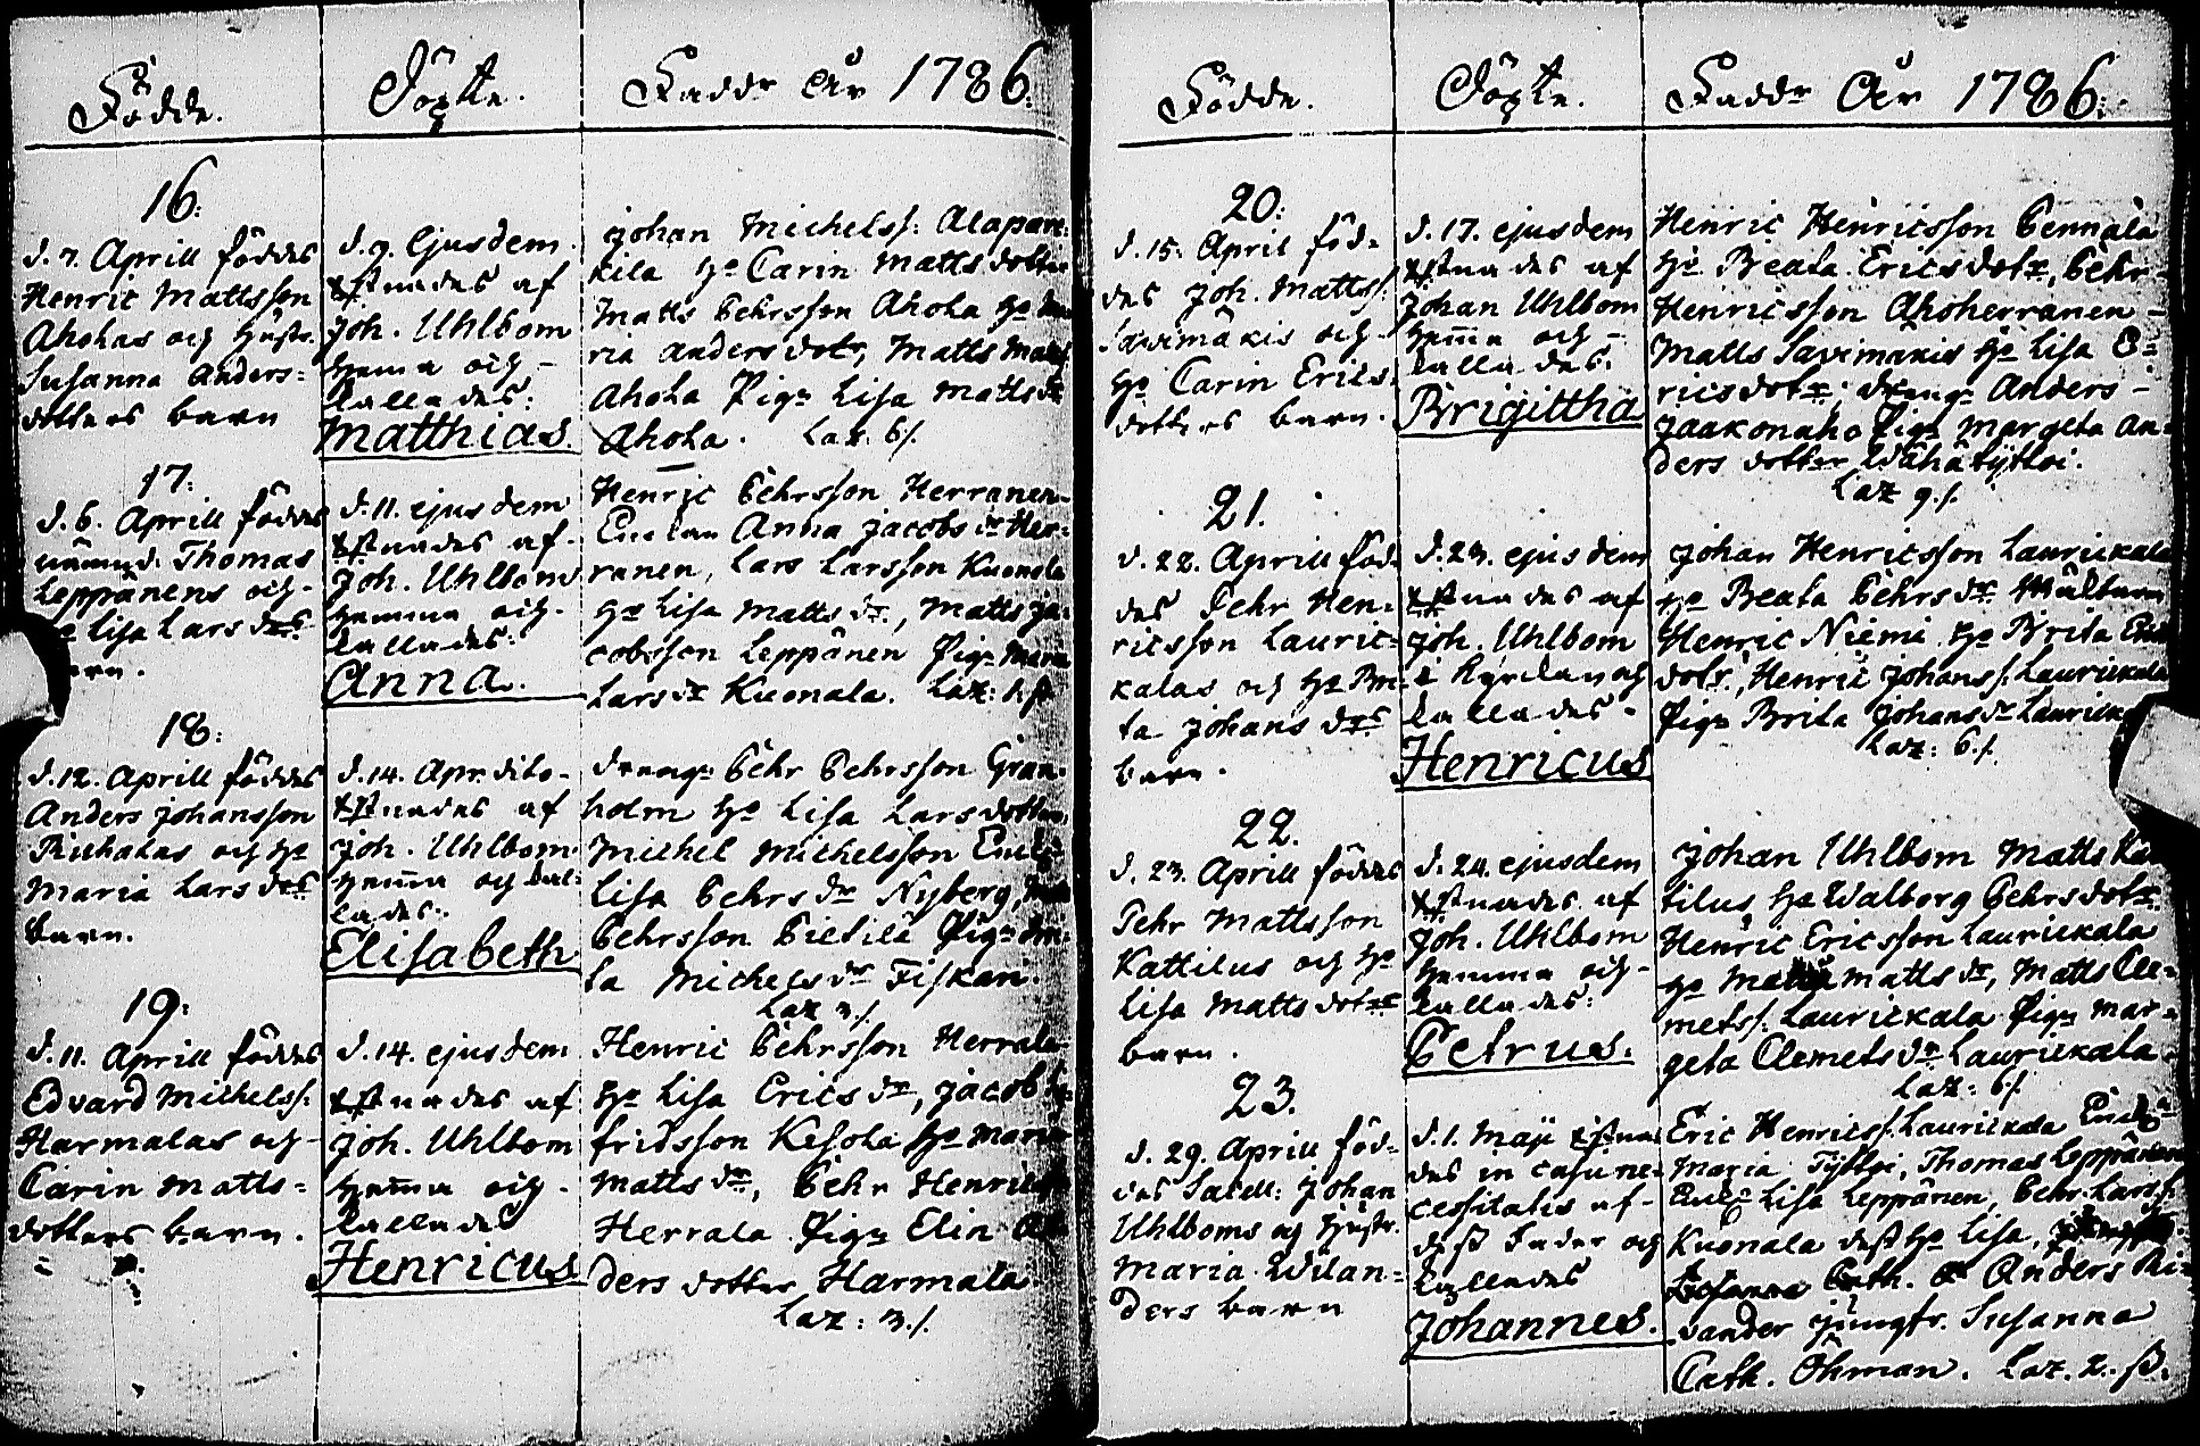 Födde.
Döpte.
Faddr År 1786.
16:
d. 7. Aprill föddes
Henric Mattsson
Aholas och Hustr.
Susanna Anders=
dotters barn
d. 9. Ejusdem
xstnades af
Joh. Uhlbom
hema och -
kallades:
Matthias.
Johan Michelss: Alapart:
kila ho Carin Matts dotter
Matts Pehrsson Ahola ho Ma
ria Anders dotr, Matts Matss
Ahola Pign Lisa Mattsdr
Ahola. Laz: 6/.
17:
d. 6. Aprill föddes
nämnd. Thomas
Leppänens och -
Lisa Lars drs
barn.
d. 11. ejusdem
xstnades af -
Joh. Uhlbom
hemma och -
kallades:
Anna.
Henric Pehrsson Herranen
Enkan Anna Jacobs dr Her=
ranen, Lars Larsson Kuonala
ho Lisa Matts dr, Matts Ja=
cobsson Leppänen Pign Maria
Lars dr Kuonala. Laz:
18:
d. 12. Aprill föddes
Anders Johansson
och ho
Maria Lars drs
barn.
d. 14. Apr. dito -
xstnades af
Joh. Uhlbom
hema och kal=
lades:
Elisabeth
drengn Pehr Pehrsson Gran=
holm ho Lisa Lars dotter,
Michel Michelsson
Lisa Pehrs dr Nyberg,
Pehrsson Pietilä Pign
ta Michelsdr Fiskari.
Laz 3/.
19:
d. 11. Aprill föddes
Edvard Michelss:
Harmalas och -
Carin Matts=
dotters barn.
d. 14. ejusdem
xstnades af
Joh. Uhlbom
hema och -
kallades
Henricus
Henric Pehrsson Herrala
ho Lisa Erics dr, Jacob
fridsson Kesola ho Maria
Matts dr, Pehr Henricss
Herrala Pign Elin An
ders dotter Harmala
Laz: 3./.
Födde.
Döpte.
Faddr År 1786.
20:
d. 15. April föd=
des Joh. Mattss:
Savimäkis och -
ho Carin Erics
dotters barn.
d. 17. ejusdem
xstnades af
Johan Uhlbom
hema och -
kallades:
Brigittha
Henric Henricsson Pennala
ho Beata Ericsdotr, Pehr -
Henricsson Ahoherranen -
Matts Savimäkis ho Lisa E=
ricsdotr; drengn Anders -
Jaakonaho Pign Margeta An=
ders dotter Wähätyttoi.
Laz 9./.
21.
d. 22. Aprill föd=
des Pehr Hen=
ricsson Lauric=
kalas och ho Bri=
ta Johans drs
barn.
d. 23. ejusdem
xstnades af
Joh. Uhlbom
i Kyrckan och
kallades -
Henricus
Johan Henricsson Laurickala
ho Beata Pehrs dr
Henric Niemi ho Brita
dotr, Henric Johanss: Laurickala
Pign Brita Johansdr Lauricka
Laz: 6./.
22.
d. 23. Aprill föddes
Pehr Mattsson
Kattilus och ho
Lisa Matts dotrs
barn.
d. 24. ejusdem
xstnades af
Joh. Uhlbom
hemma och -
kallades:
Petrus.
Johan Uhlbom Matts Kat
tilus, ho Walborg Pehrs dotr.
Henric Ericsson Laurickala
ho Matts dr, Matts Cle=
metss: Laurickala Pign Mar=
geta Clemets dr Laurickala.
Laz: 6./.
23.
d. 29. Aprill föd=
des Johan
Uhlboms och Hustr.
Maria Wilan=
ders barn
d. 1. Maji xstna
des in casu ne=
cessitatis af -
dess fader och
kallades
Johannes.
Eric Henricss: Laurickala Enck
Maria Tyttoi, Thomas Leppänen
Lisa Leppänen, Pehr Larss:
Kuonala dess ho Lisa,
Cath. Anders Ri=
vander Jungfr. Susanna
Cath. Öhman. Laz. 2. ß.